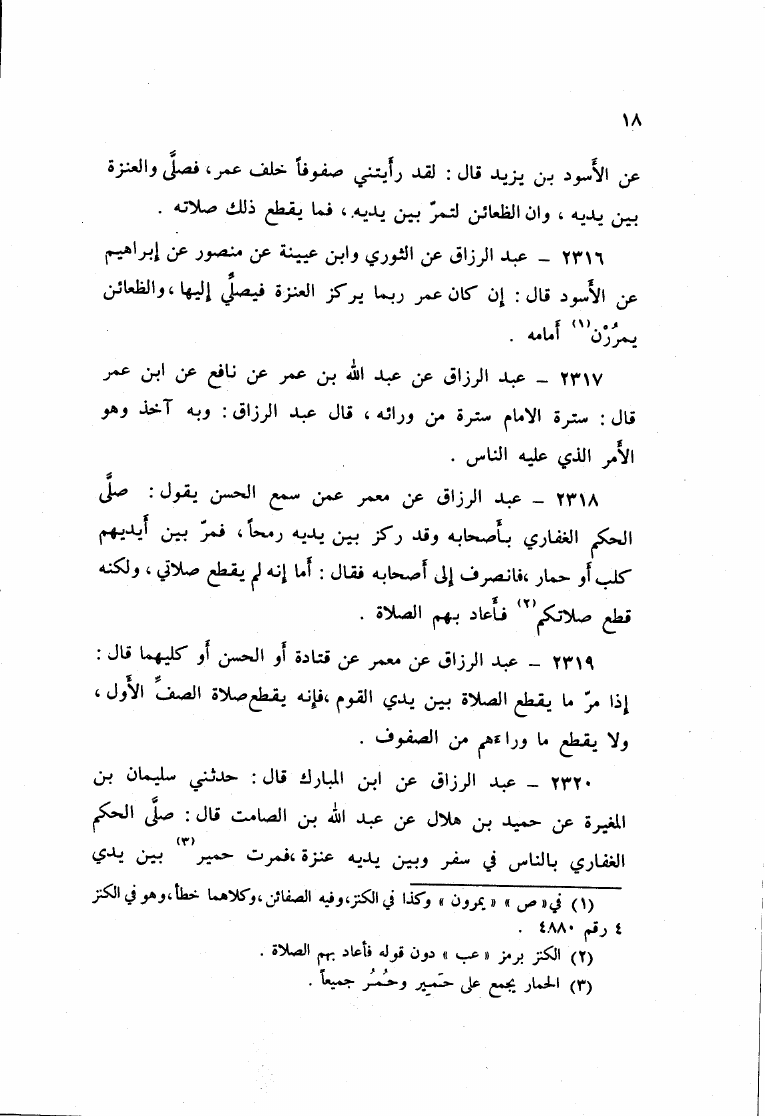 ١٨
عن الأسود بن يزيد قال : لقد رأيتني صفوفاً خلف عمر ، فصلَّى والعنزة
بين يديه ، وان الظعائن لتمرّ بين يديه ، فما يقطع ذلك صلاته .
٢٣١٦ – عبد الرزاق عن الثوري وابن عيينة عن منصور عن إبراهيم
عن الأسود قال : إن كان عمر ربما يركز العنزة فيصلِّي إليها ، والظعائن
يمرُرْن (١) أمامه .
٢٣١٧ – عبد الرزاق عن عبد الله بن عمر عن نافع عن ابن عمر
قال : سترة الامام سترة من ورائه ، قال عبد الرزاق : وبه آخذ وهو
الأمر الذي عليه الناس .
٢٣١٨ – عبد الرزاق عن معمر عمن سمع الحسن يقول : صلَّى
الحكم الغفاري بأصحابه وقد ركز بين يديه رمحاً ، فمرّ بين أيديهم
كلب أو حمار ،فانصرف إلى أصحابه فقال : أما إنه لم يقطع صلاتي ، ولكنه
قطع صلاتكم (٢) فأعاد بهم الصلاة .
٢٣١٩ – عبد الرزاق عن معمر عن قتادة أو الحسن أو كليهما قال :
إذا مرّ ما يقطع الصلاة بين يدي القوم ،فإنه يقطع صلاة الصفّ الأول ،
ولا يقطع ما وراءهم من الصفوف .
٢٣٢٠ – عبد الرزاق عن ابن المبارك قال : حدثني سليمان بن
المغيرة عن حميد بن هلال عن عبد الله بن الصامت قال : صلَّى الحكم
الغفاري بالناس في سفر وبين يديه عنزة ،فمرت حمير (٣) بين يدي
(١) في« ص » « يمرون » وكذا في الكنز،وفيه الصفائن،وكلاهما خطأ،وهو في الكنز
٤ رقم ٤٨٨٠ .
(٢) الكنز برمز « عب » دون قوله فأعاد بهم الصلاة .
(٣) الحمار يجمع على حَمِير وحُمُر جميعاً .